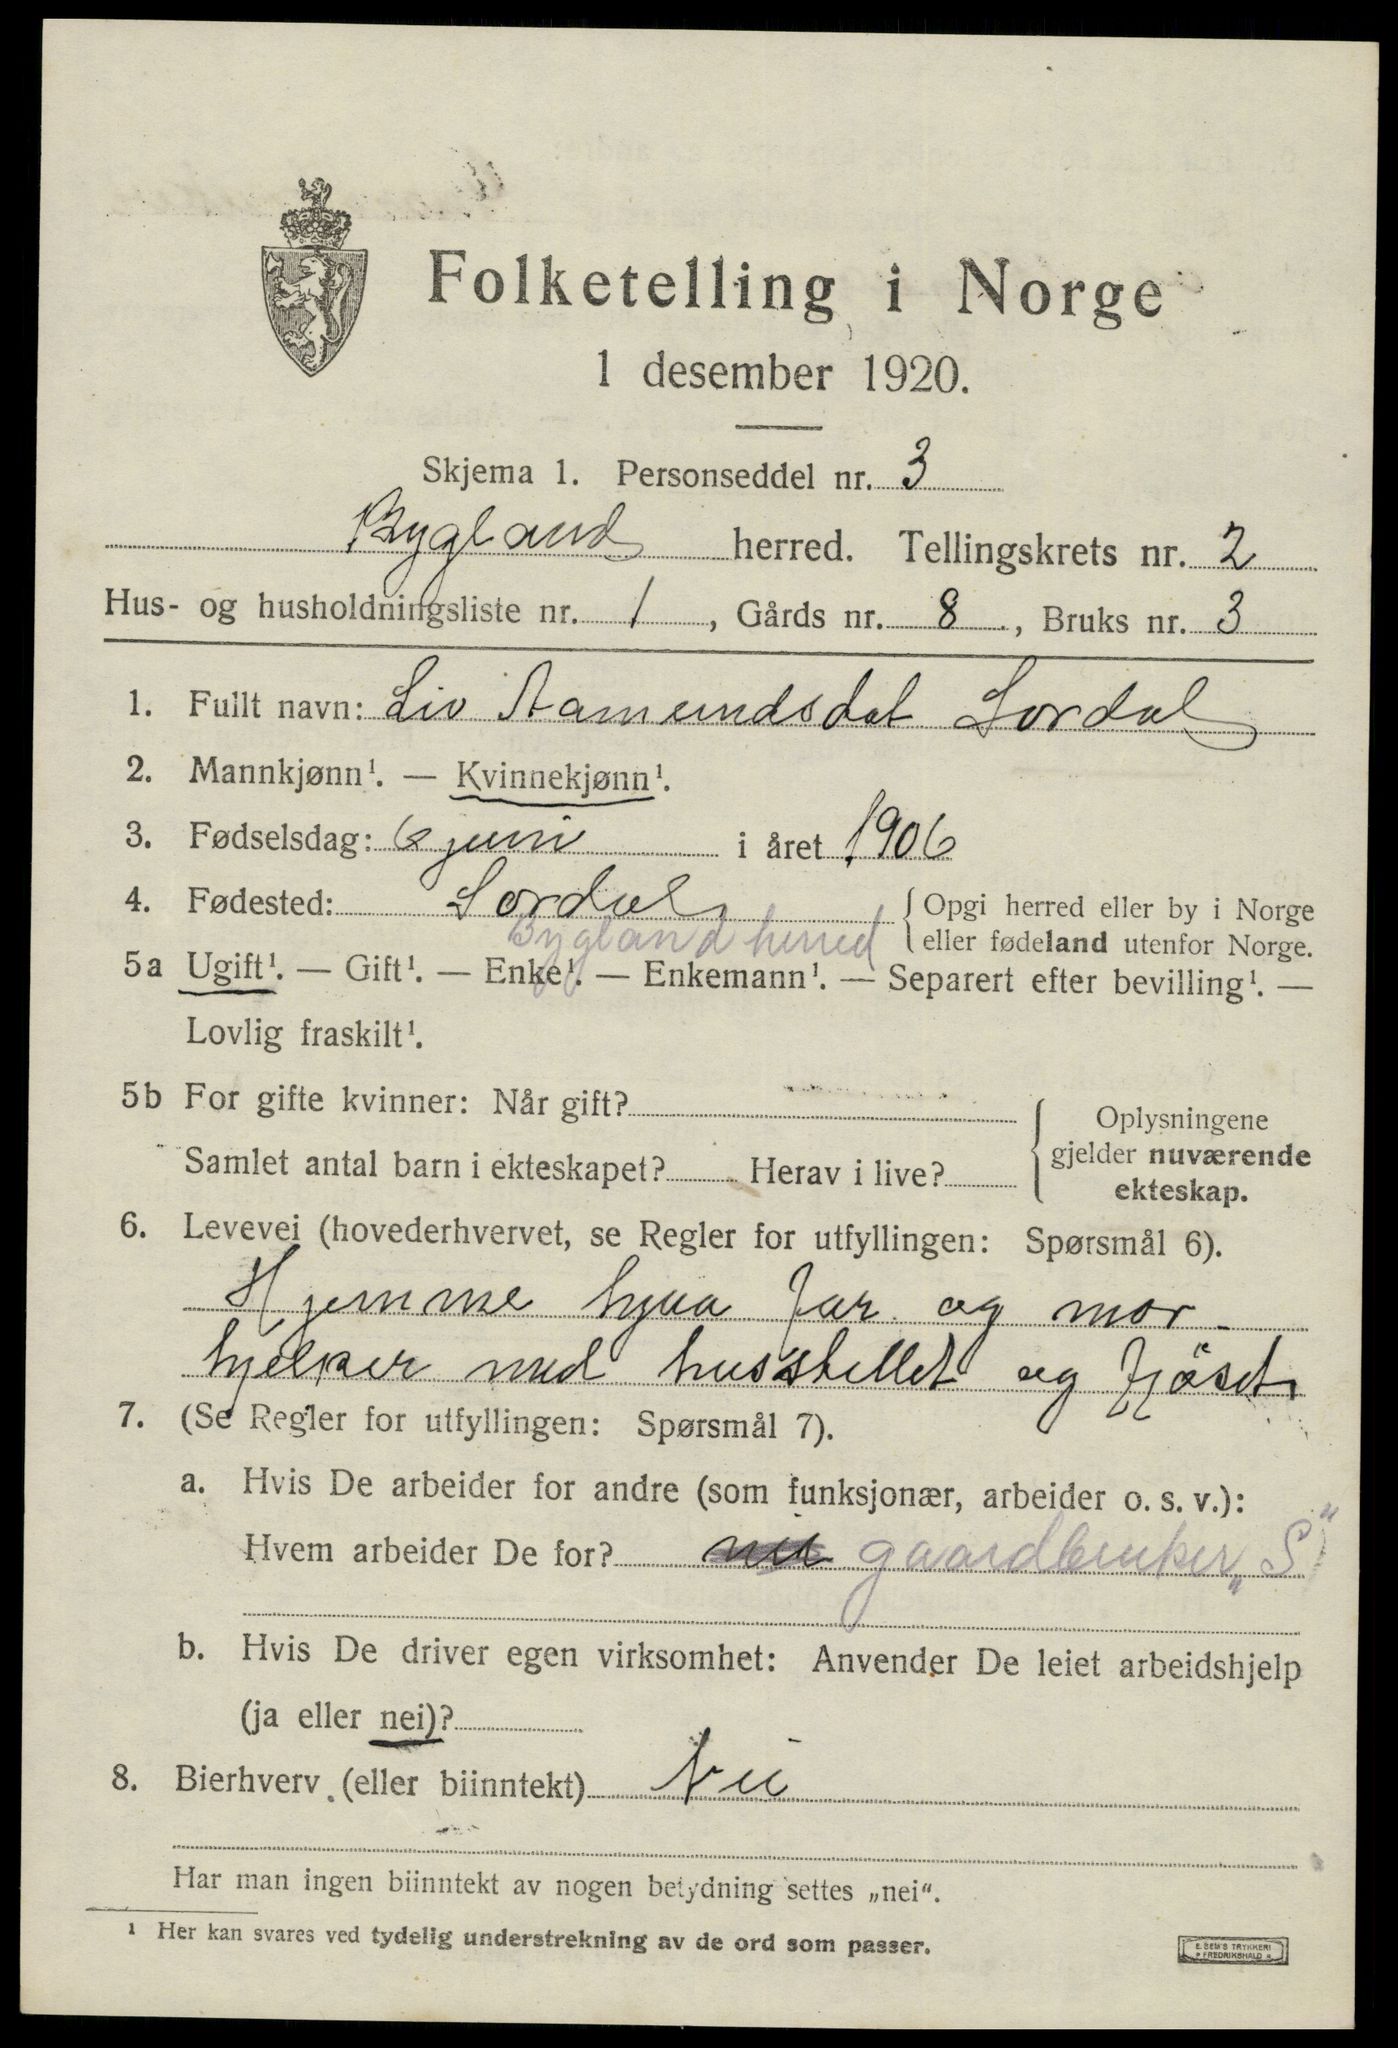 Folketelling i Norge
1 desember 1920.
Skjema 1. Personseddel nr. 3
Bygland herred. Tellingskrets nr. 2
Hus- og husholdningsliste nr. 1, Gårds nr. 8, Bruks nr. 3
1. Fullt navn: Liv Aamundsdat Lordal
2. Mannkjønn¹. — Kvinnekjønn¹.
3. Fødselsdag: 6 juni i året 1906
4. Fødested: Lordal { Opgi herred eller by i Norge
Bygland herred eller fødeland utenfor Norge.
5a Ugift¹. — Gift¹. — Enke¹. — Enkemann¹. — Separert efter bevilling¹. —
Lovlig fraskilt¹.
5b For gifte kvinner: Når gift?
Samlet antal barn i ekteskapet? Herav i live?
{ Oplysningene
gjelder nuværende
ekteskap.
6. Levevei (hovederhvervet, se Regler for utfyllingen: Spørsmål 6).
Hjemme hjaa far og mor
hjelper med husstellet og fjöset
7. (Se Regler for utfyllingen: Spørsmål 7).
a. Hvis De arbeider for andre (som funksjonær, arbeider o. s. v.):
Hvem arbeider De for? gaardbruker „S"
b. Hvis De driver egen virksomhet: Anvender De leiet arbeidshjelp
(ja eller nei)?
8. Bierhverv (eller biinntekt) Nei
Har man ingen biinntekt av nogen betydning settes „nei".
¹ Her kan svares ved tydelig understrekning av de ord som passer.
E. SEM'S TRYKKERI
FREDRIKSHALD